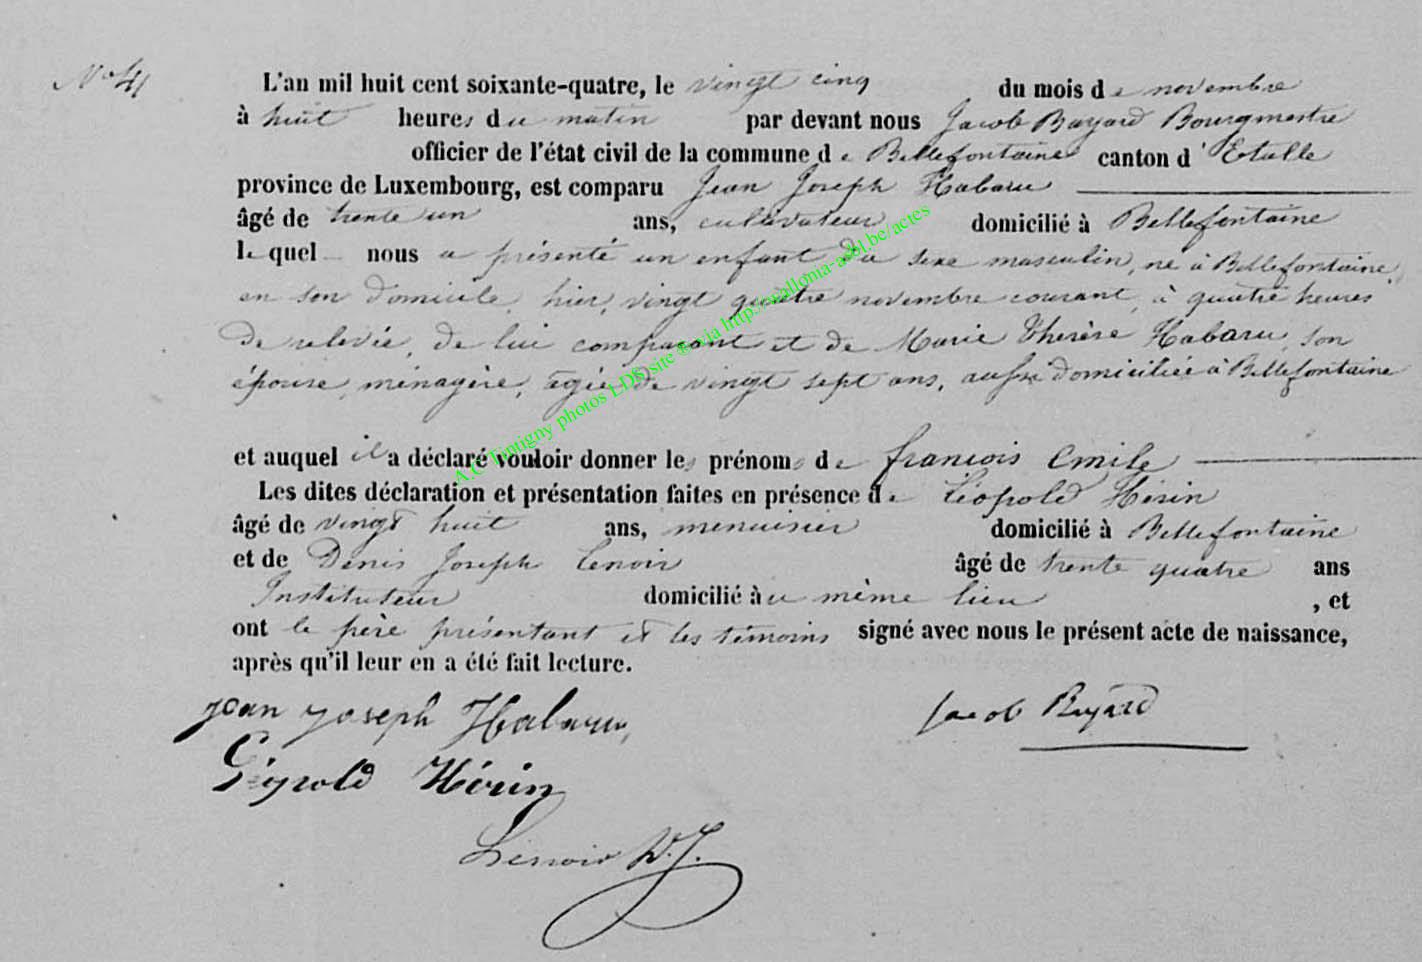 N° 41
L'an mil huit cent soixante-quatre, le vingt cinq du mois de novembre
à huit heures du matin par devant nous Jacob Bayard Bourgmestre
officier de l'état civil de la commune de Bellefontaine canton d'Etalle
province de Luxembourg, est comparu Jean Joseph Habaru
âgé de trente un ans, cultivateur domicilié à Bellefontaine
lequel nous a présenté un enfant du sexe masculin, né à Bellefontaine,
en son domicile, hier, vingt quatre novembre courant, à quatre heures
de relevée, de lui comparant et de Marie Thérèse Habaru, son
épouse, ménagère, agée de vingt sept ans, aussi domiciliée à Bellefontaine
et auquel il a déclaré vouloir donner les prénoms de françois Emile
Les dites déclaration et présentation faites en présence de Léopold Hérin
âgé de vingt huit ans, menuisier domicilié à Bellefontaine
et de Denis Joseph Lenoir âgé de trente quatre ans
Instituteur domicilié au même lieu, et
ont le père présentant et les témoins signé avec nous le présent acte de naissance,
après qu'il leur en a été fait lecture.
jean joseph Habaru, Jacob Bayard
Léopold Hérin
Lenoir D. J.
A.C Tintigny photos LDS site ® via http://wallonia-asbl.be/actes